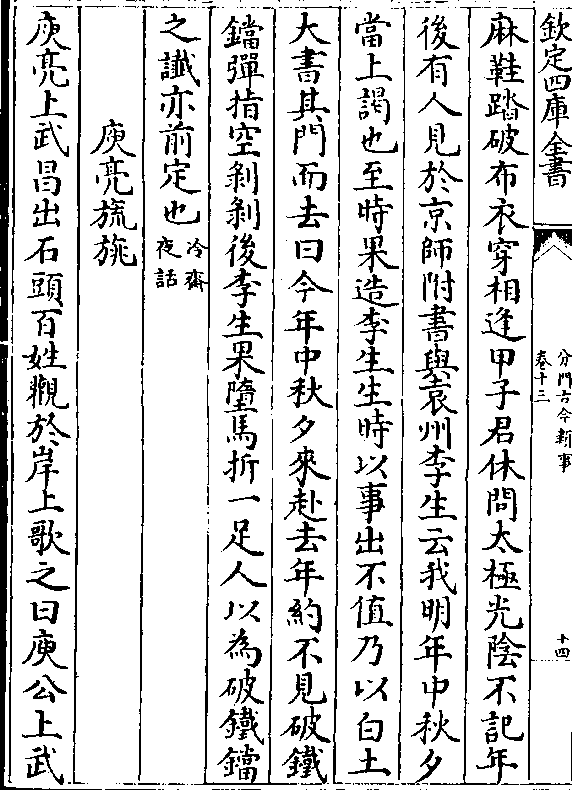 欽定四庫全書
分門古今類事
卷十三
十四
麻鞋踏破布衣穿相逢甲子君休問太極光陰不記年
後有人見於京師附書與袁州李生云我明年中秋夕
當上謁也至時果造李生生時以事出不值乃以白土
大書其門而去曰今年中秋夕來赴去年約不見破鐵
鐺彈指空剝剝後李生果墮馬折一足人以為破鐵鐺
之讖亦前定也冷齋夜話
庾亮旒旐
庾亮上武昌出石頭百姓觀於岸上歌之曰庾公上武